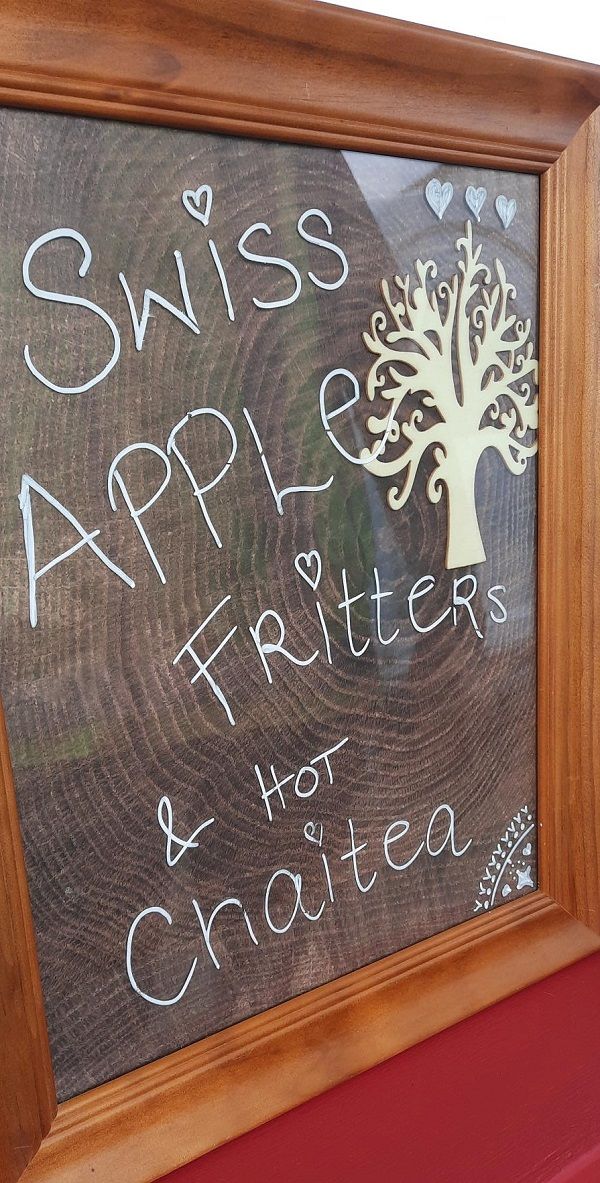 Swiss
APPLe
FRitteRs
& HOT
Chaitea